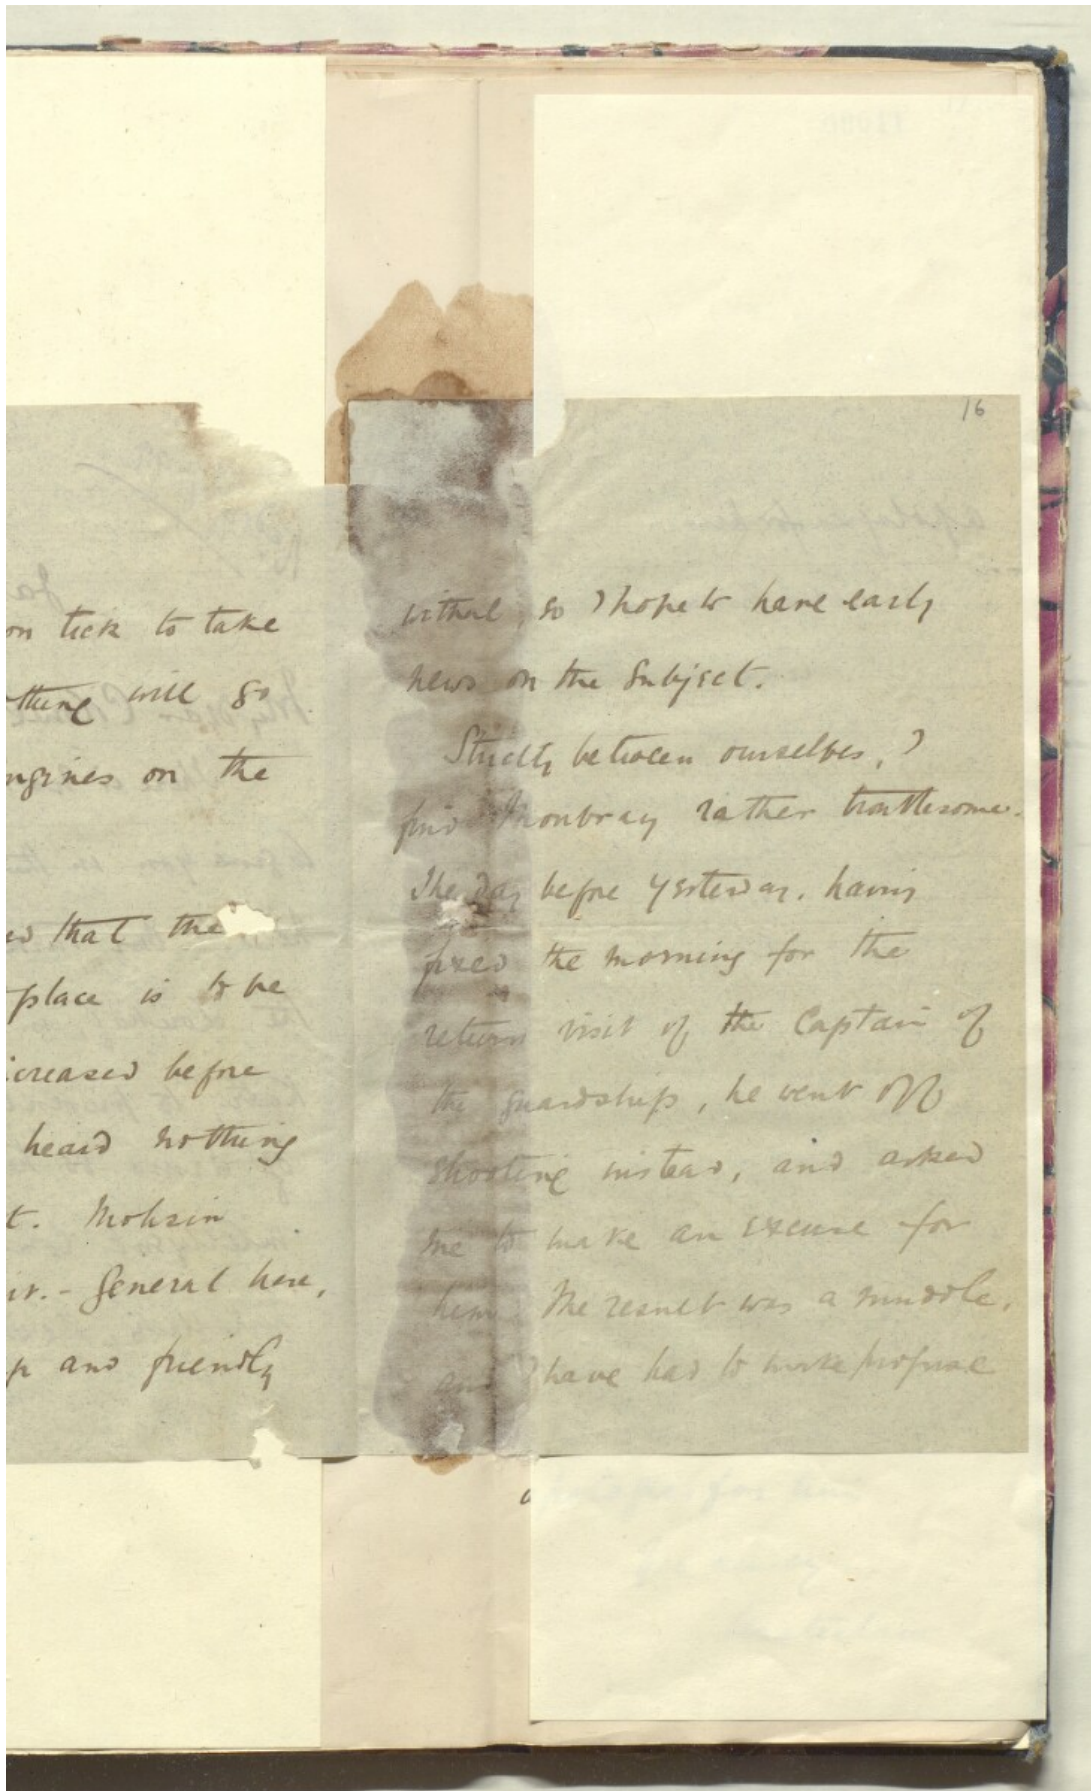 on tick to take
thing will go
ngines on the
that the
place is to be
creased before
heard nothing
t. Mohsin
General here,
and friendly
16
withal, so I hope to have early
news on the subject.
Strictly between ourselves, I
find Moubray rather troublesome.
The day before yesterday, having
fixed the morning for the
return visit of the Captain of
the guardship, he went off
shooting instead, and asked
me to make an excuse for
him. The result was a muddle,
and I have had to make profuse